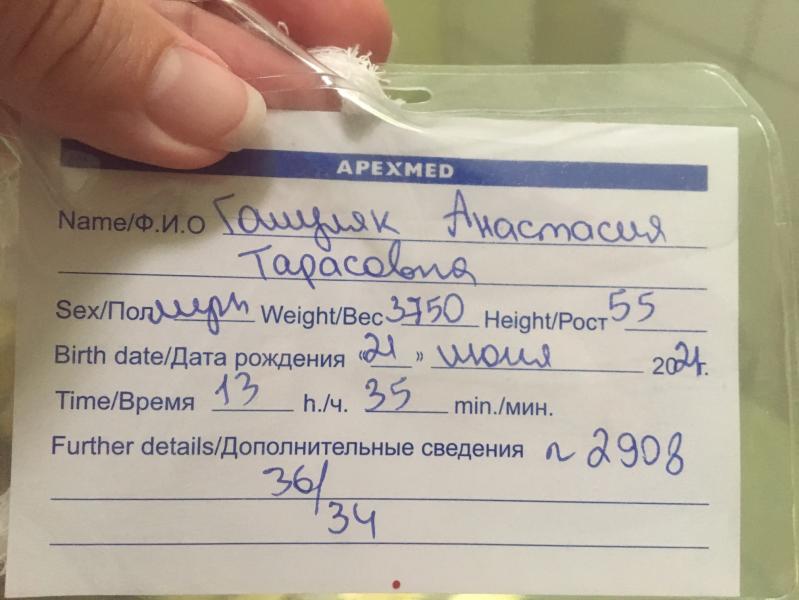 APEXMED
Name/Ф.И.О Гашуляк Анастасия
Тарасовна
Sex/Пол Weight/Вес 3750 Height/Рост 55
Birth date/Дата рождения «21» июня 2021г.
Time/Время 13 h./ч. 35 min./мин.
Further details/Дополнительные сведения N 2908
36/
34